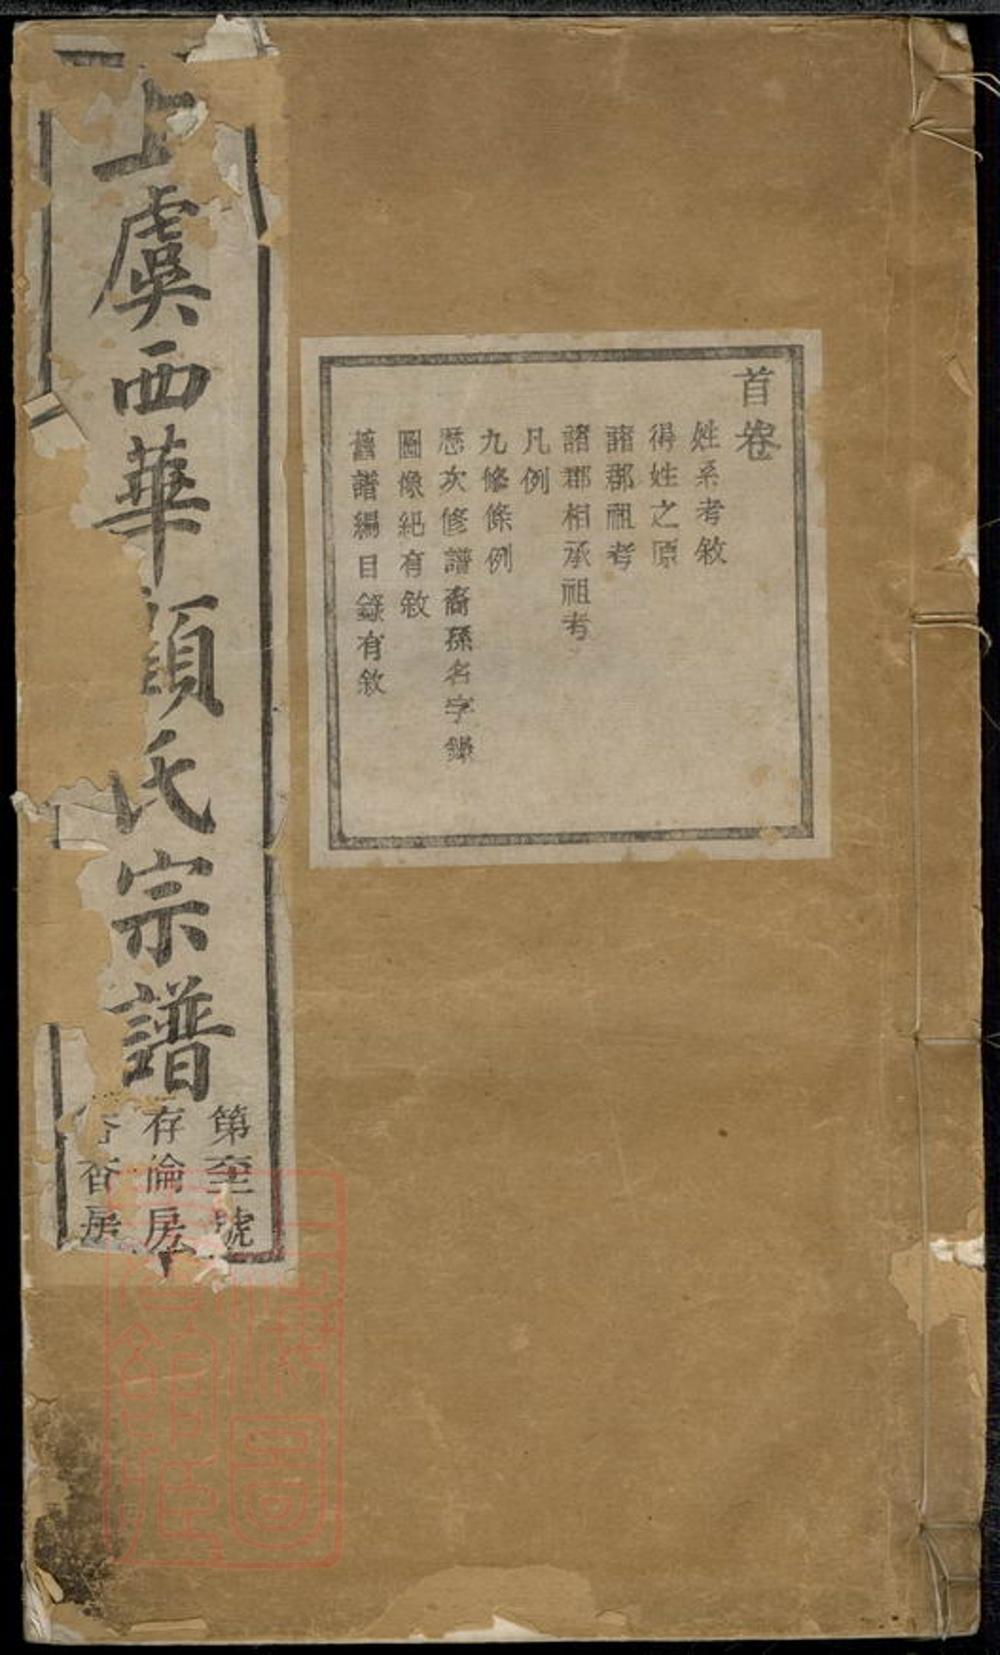 首卷
姓系考敘
得姓之原
諸郡祖考
諸郡相承祖考
凡例
九修條例
歷次修譜裔孫名字錄
圖像紀有敘
舊譜編目錄有敘
上虞西華顧氏宗譜
第 號
存倫房
杏房